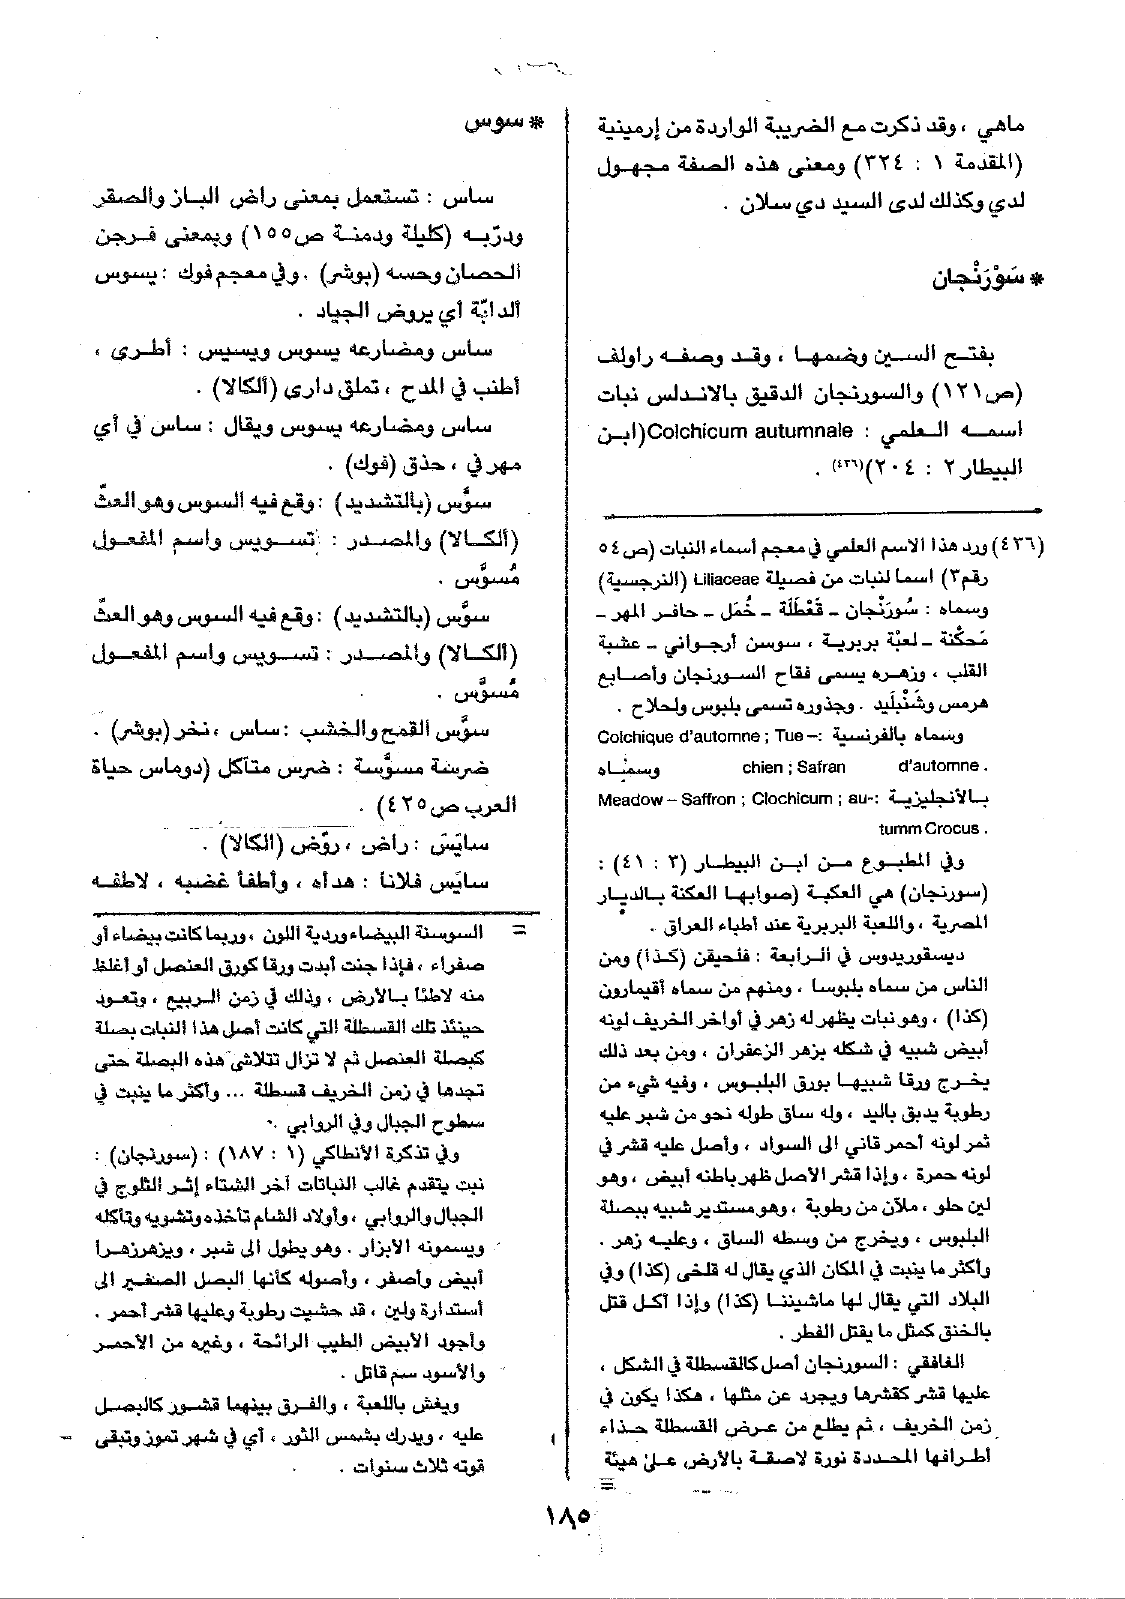 ماهي ، وقد ذكرت مع الضريبة الواردة من إرمينية
(المقدمة ١ : ٣٢٤) ومعنى هذه الصفة مجهول
لدي وكذلك لدى السيد دي سلان .
* سَوْرَنْجان
بفتح السين وضمها ، وقد وصفه راولف
(ص١٢١) والسورنجان الدقيق بالاندلس نبات
اسمه العلمي : Colchicum autumnale (ابن
البيطار ٢ : ٢٠٤)(٤٣٦) .
(٤٣٦) ورد هذا الاسم العلمي في معجم أسماء النبات (ص٥٤
رقم٣) اسما لنبات من فصيلة Liliaceae (النرجسية)
وسماه : سُورَنْجان - قَعْطَلَة - خُمَل - حافر المهر -
مَحكْنة - لعبْة بربرية ، سوسن أرجواني - عشبة
القلب ، وزهره يسمى فقاح السورنجان وأصابع
هرمس وشَنْبَليد . وجذوره تسمى بلبوس ولحلاح .
وسماه بالفرنسية :Colchique d'automne ; Tue-
chien ; Safran d'automne . وسمّاه
بالأنجليزية :Meadow – Saffron ; Clochicum ; au-
tumm Crocus .
وفي المطبوع من ابن البيطار (٣ : ٤١) :
(سورنجان) هي العكبة (صوابها العكنة بالديار
المصرية ، واللعبة البربرية عند أطباء العراق .
ديسقوريدوس في الرابعة : فلحيقن (كذا) ومن
الناس من سماه بلبوسا ، ومنهم من سماه أقيمارون
(كذا) ، وهو نبات يظهر له زهر في أواخر الخريف لونه
أبيض شبيه في شكله بزهر الزعفران ، ومن بعد ذلك
يخرج ورقا شبيها بورق البلبوس ، وفيه شيء من
رطوبة يدبق باليد ، وله ساق طوله نحو من شبر عليه
ثمر لونه أحمر قاني الى السواد ، وأصل عليه قشر في
لونه حمرة ، وإذا قشر الاصل ظهر باطنه أبيض ، وهو
لين حلو ، ملآن من رطوبة ، وهو مستدير شبيه ببصلة
البلبوس ، ويخرج من وسطه الساق ، وعليه زهر .
وأكثر ما ينبت في المكان الذي يقال له قلخى (كذا) وفي
البلاد التي يقال لها ماشيننا (كذا) وإذا أكل قتل
بالخنق كمثل ما يقتل الفطر .
الغافقي : السورنجان أصل كالقسطلة في الشكل ،
عليها قشر كقشرها ويجرد عن مثلها ، هكذا يكون في
زمن الخريف ، ثم يطلع من عرض القسطلة حذاء
اطرافها المحددة نورة لاصقة بالأرض على هيئة
=
* سوس
ساس : تستعمل بمعنى راض الباز والصقر
ودرّبه (كليلة ودمنة ص١٥٥) وبمعنى فرجن
الحصان وحسه (بوشر) . وفي معجم فوك : يسوس
الدابّة أي يروض الجياد .
ساس ومضارعه يسوس ويسيس : أطرى ،
أطنب في المدح ، تملق دارى (ألكالا) .
ساس ومضارعه يسوس ويقال : ساس في أي
مهر في ، حذق (فوك) .
سوَّس (بالتشديد) : وقع فيه السوس وهو العثّ
(ألكالا) والمصدر : تسويس واسم المفعول
مُسوَّس .
سوَّس (بالتشديد) : وقع فيه السوس وهو العثّ
(الكالا) والمصدر : تسويس واسم المفعول
مُسوَّس .
سوَّس القمح والخشب : ساس ، نخر (بوشر) .
ضرسة مسوَّسة : ضرس متآكل (دوماس حياة
العرب ص٤٢٥) .
سايَسَ : راض ، روّض (الكالا) .
سايَس فلانا : هدأه ، وأطفأ غضبه ، لاطفه
= السوسنة البيضاء وردية اللون ، وربما كانت بيضاء أو
صفراء ، فإذا جنت أبدت ورقا كورق العنصل أو أغلظ
منه لاطئا بالأرض ، وذلك في زمن الربيع ، وتعود
حينئذ تلك القسطلة التي كانت أصل هذا النبات بصلة
كبصلة العنصل ثم لا تزال تتلاشى هذه البصلة حتى
تجدها في زمن الخريف قسطلة ... وأكثر ما ينبت في
سطوح الجبال وفي الروابي .
وفي تذكرة الأنطاكي (١ : ١٨٧) : (سورنجان) :
نبت يتقدم غالب النباتات آخر الشتاء إثر الثلوج في
الجبال والروابي ، وأولاد الشام تأخذه وتشويه وتأكله
ويسمونه الابزار . وهو يطول الى شبر ، ويزهر زهرا
أبيض وأصفر ، وأصوله كأنها البصل الصغير الى
أستدارة ولين ، قد حشيت رطوبة وعليها قشر أحمر .
وأجود الأبيض الطيب الرائحة ، وغيره من الأحمر
والأسود سم قاتل .
ويغش باللعبة ، والفرق بينهما قشور كالبصل
عليه ، ويدرك بشمس الثور ، أي في شهر تموز وتبقى
قوته ثلاث سنوات .
١٨٥